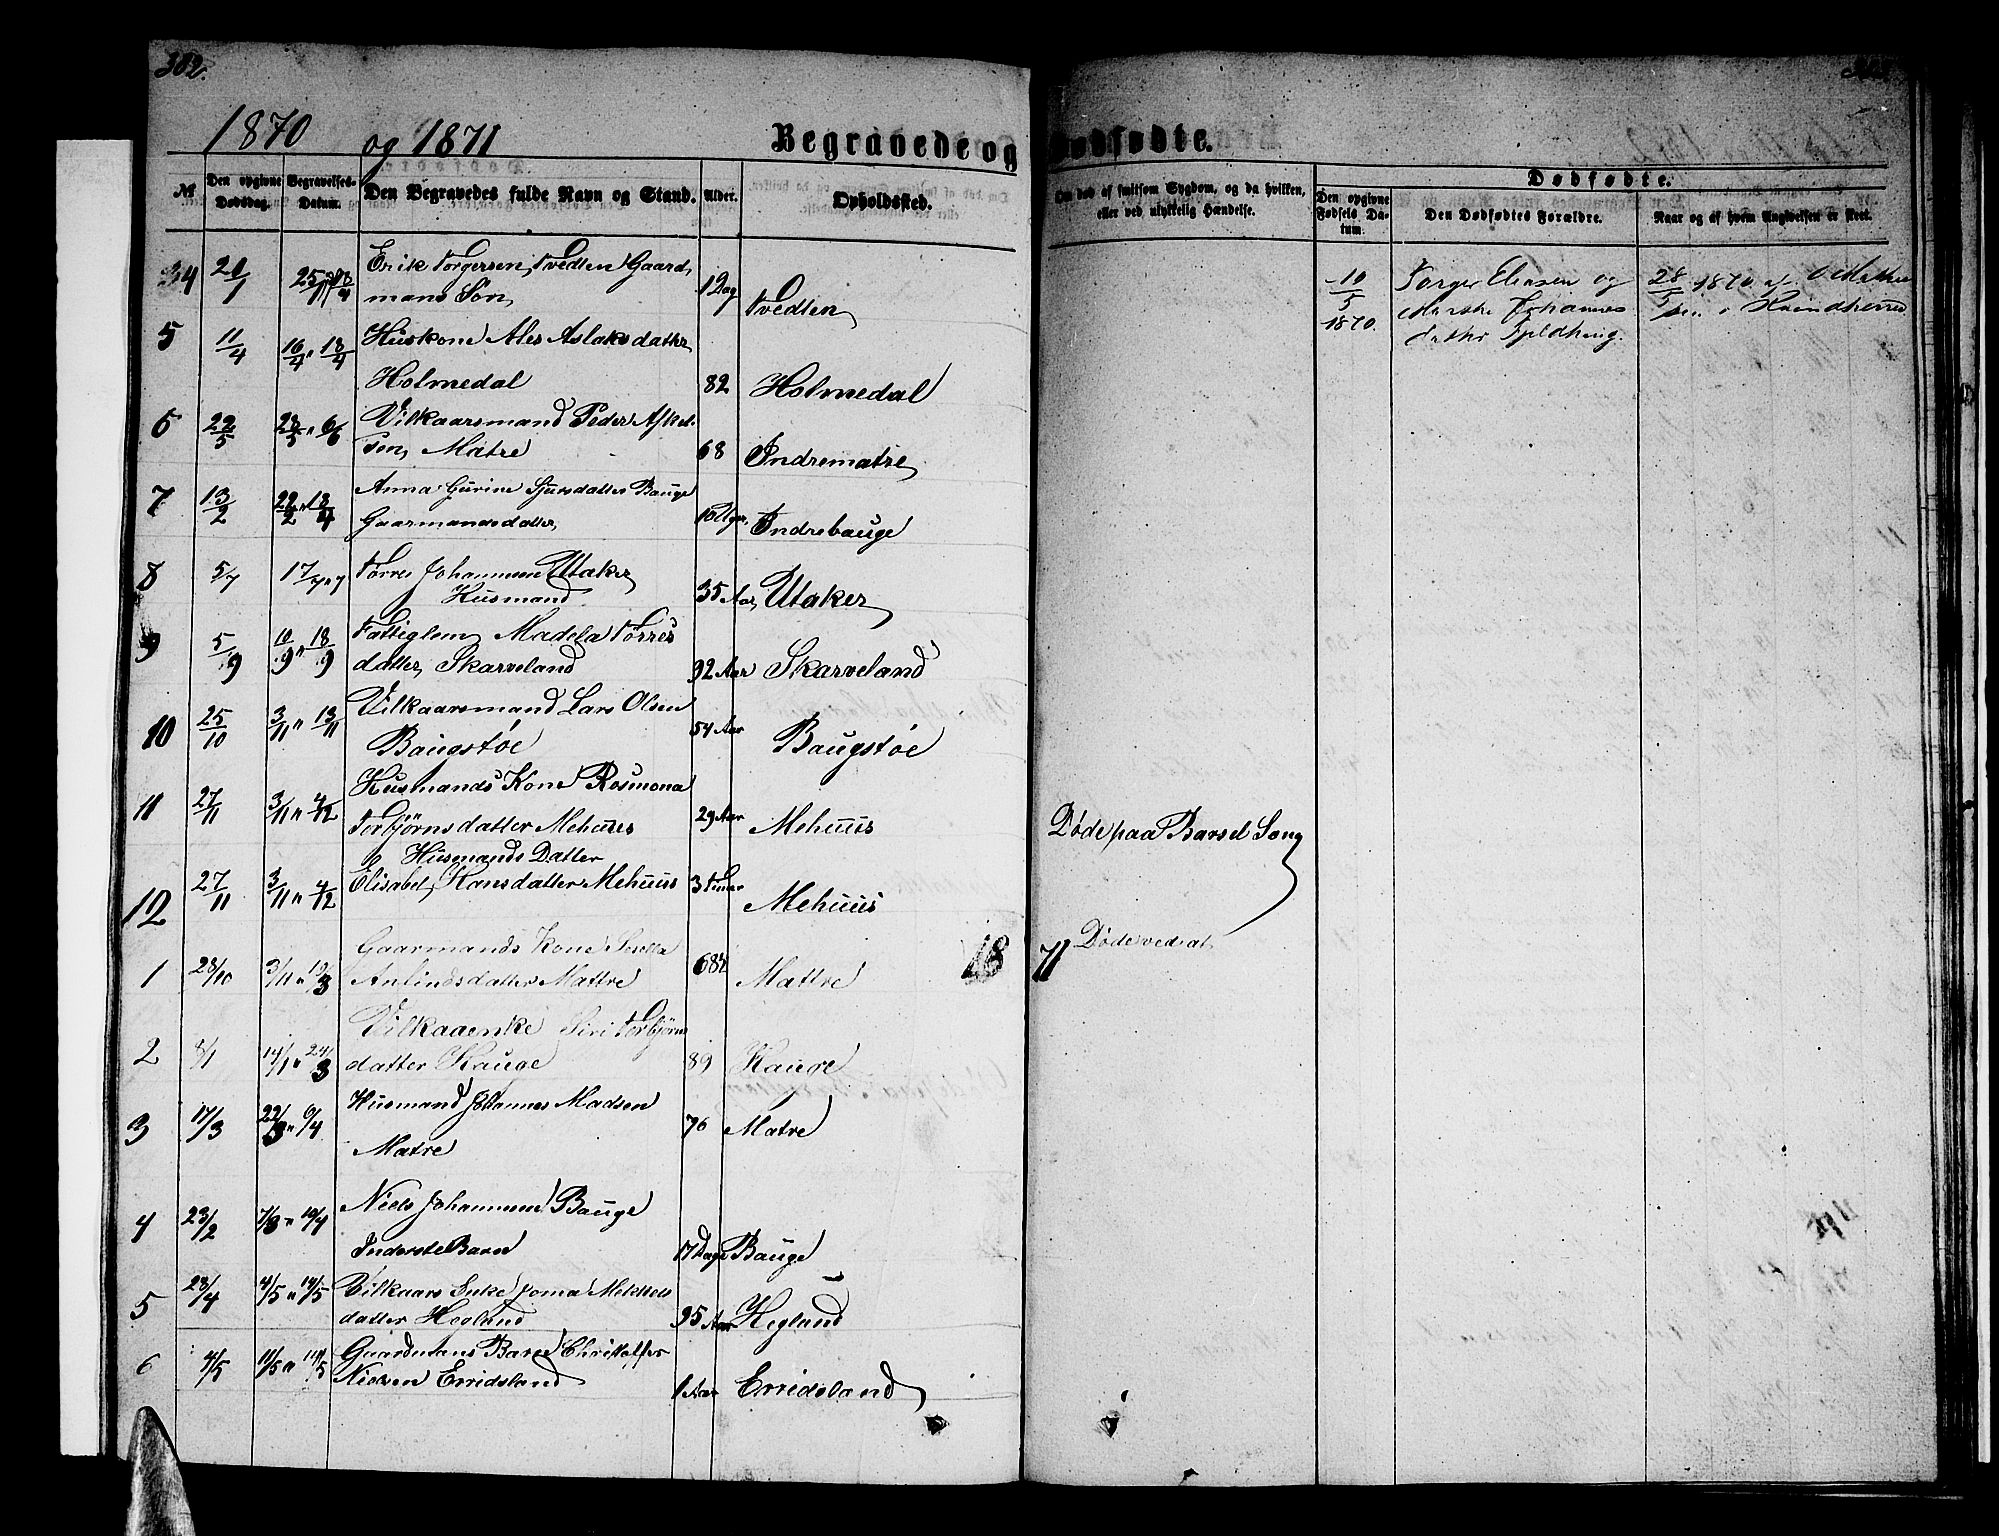 382.
1870 og 1871
Begravede og Dødfødte.
№
Den opgivne Dødsdag.
Begravelses-Datum.
Den Begravedes fulde Navn og Stand.
Alder.
Opholdssted.
Om død af smitsom Sygdom, og da hvilken, eller ved ulykkelig Hændelse.
Dødfødte.
Den opgivne Fødsels Datum.
Den Dødfødtes Forældre.
Naar og af hvem Angivelsen er skeet.
34 Erik Torgersen, Tvedten Gaard
mans Søn, 1 Dag Tvedten
5 11/4 16/4 " 18/4 Huskone Ales Aslaksdatter
Holmedal 82 Holmedal
6 22/5 " 6/6 Vilkaarsmand Peder
sen, Matre 68 Indrematre
7 13/2 22/2 " 18/4 Anna Gurine Sjursdatter Bauge
Gaarmandsdatter, Indrebauge
8 5/7 17/7 Torres Johannesen Utaker
Husmand 35 Aar, Utaker
9 5/9 10/9 " 18/9 Fattiglem, Madela Torres
datter, Skarveland 92 Aar Skarveland
10 25/10 3/11 " 13/11 Vilkaarsmand Lars Olsen
Baugstøe 54 Aar Baugstøe
11 27/11 3/11 " 4/12 Husmands Kone Rosmona
Torbjörnsdatter Mehuus 29 Aar Mehuus Døde paa Barsel Seng
Husmands Datter
12 27/11 3/11 " 4/12 Elisabet, Hansdatter Mehuus 3 Timer Mehuus
18 71
1 28/10 3/11 " Gaarmands Kone
datter Mattre 68 Mattre Døde ved at
2 8/1 14/1 " 24/3 Vilkaaenke Siri Torbjörns
datter Hauge 89 Hauge
3 17/3 22/3 " 9/4 Husmand Johannes Madsen
Matre 76 Matre
4 23/2 7/3 " 10/4 Niels Johannesen Bauge
Inderste Barn 17 Dage Bauge
5 23/4 4/5 " 14/5 Vilkaars Enke Joma
datter Hegland 95 Aar Hegland
6 4/5 11/5 " Gaardmans Barn Christoffer
Nielsen Erridsland 1 Aar Erridsland
10/5 1870. Torger Eliasen og
Marthe Johannes
datter
28/5 1870 af O. Matre
i Kvindherred